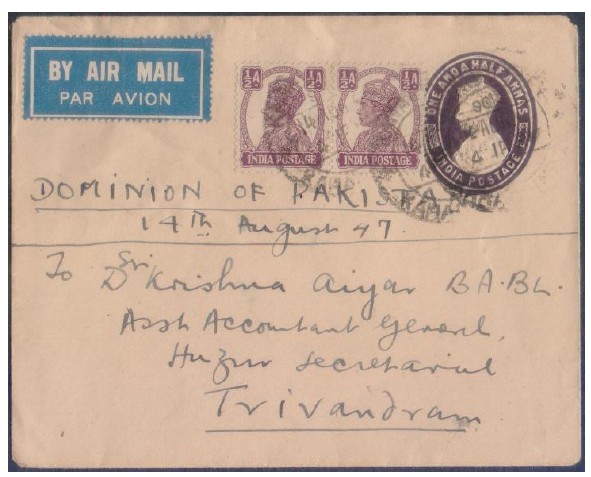 BY AIR MAIL
PAR AVION
½A ½A
INDIA POSTAGE
½A ½A
INDIA POSTAGE
ONE AND A HALF ANNAS
INDIA POSTAGE
DOMINION OF PAKISTAN
14th August 47
To Sri
D Krishna Aiyar BA.BL.
Asst Accountant General
Huzur Secretariat
Trivandram